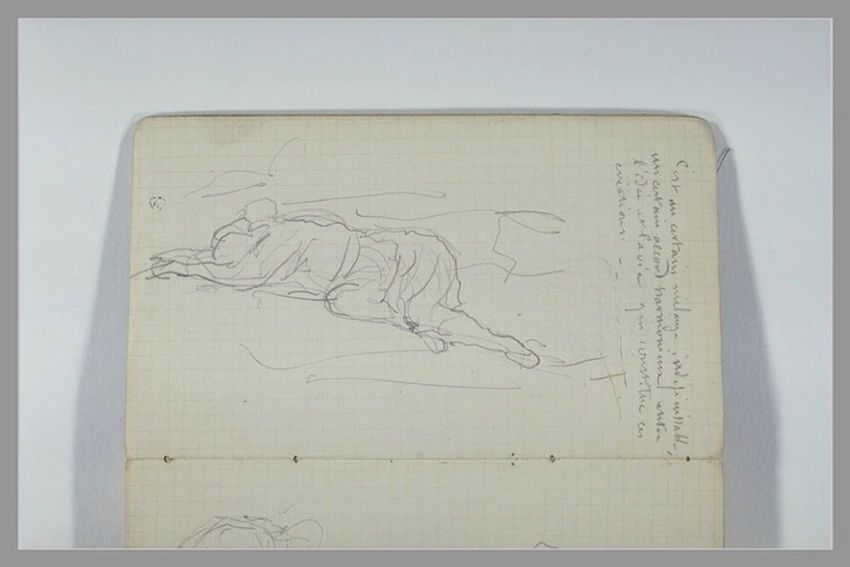 C'est un certain mélange indéfinissable,
un certain accord harmonieux entre
l'idée et la vie qui constitue ces
créations - -